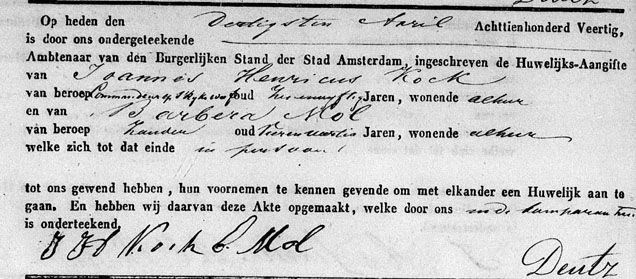 Deutz
Op heden den Dertigsten April Achttienhonderd Veertig,
is door ons ondergeteekende
Ambtenaar van den Burgerlijken Stand der Stad Amsterdam, ingeschreven de Huwelijks-Aangifte
van Joannes Henricus Kock
van beroep Commandeur oud Jaren, wonende alhier
en van Barbera Mol
van beroep zonder oud Jaren, wonende alhier
welke zich tot dat einde in persoon
tot ons gewend hebben, hun voornemen te kennen gevende om met elkander een Huwelijk aan te
gaan. En hebben wij daarvan deze Akte opgemaakt, welke door ons en de Comparanten
is onderteekend.
J H Kock B. Mol
Deutz